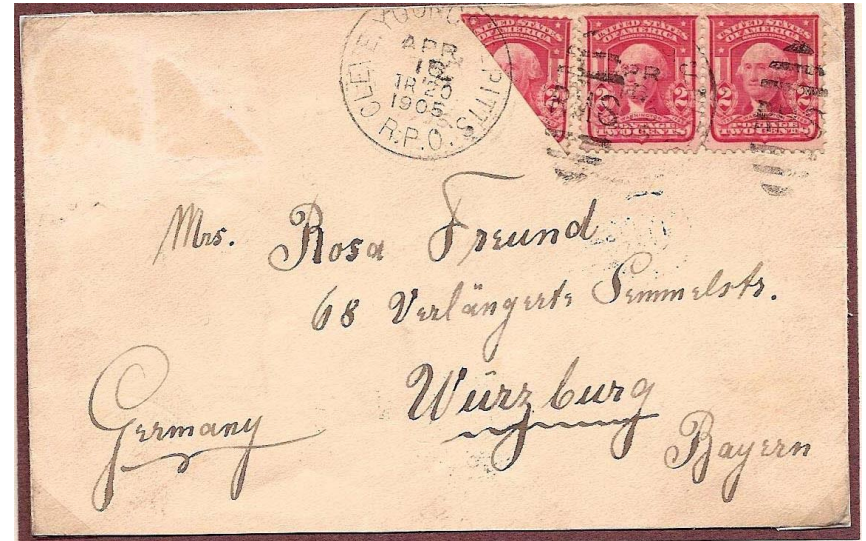 CLEVE. YOUNG. & PITTS.
APR
TR 20
1905
R.P.O.
UNITED STATES OF AMERICA
2 2
POSTAGE
TWO CENTS
UNITED STATES OF AMERICA
2 2
POSTAGE
TWO CENTS
Mrs. Rosa Freund
68 Verlängerte Semmelstr.
Würzburg
Germany
Bayern